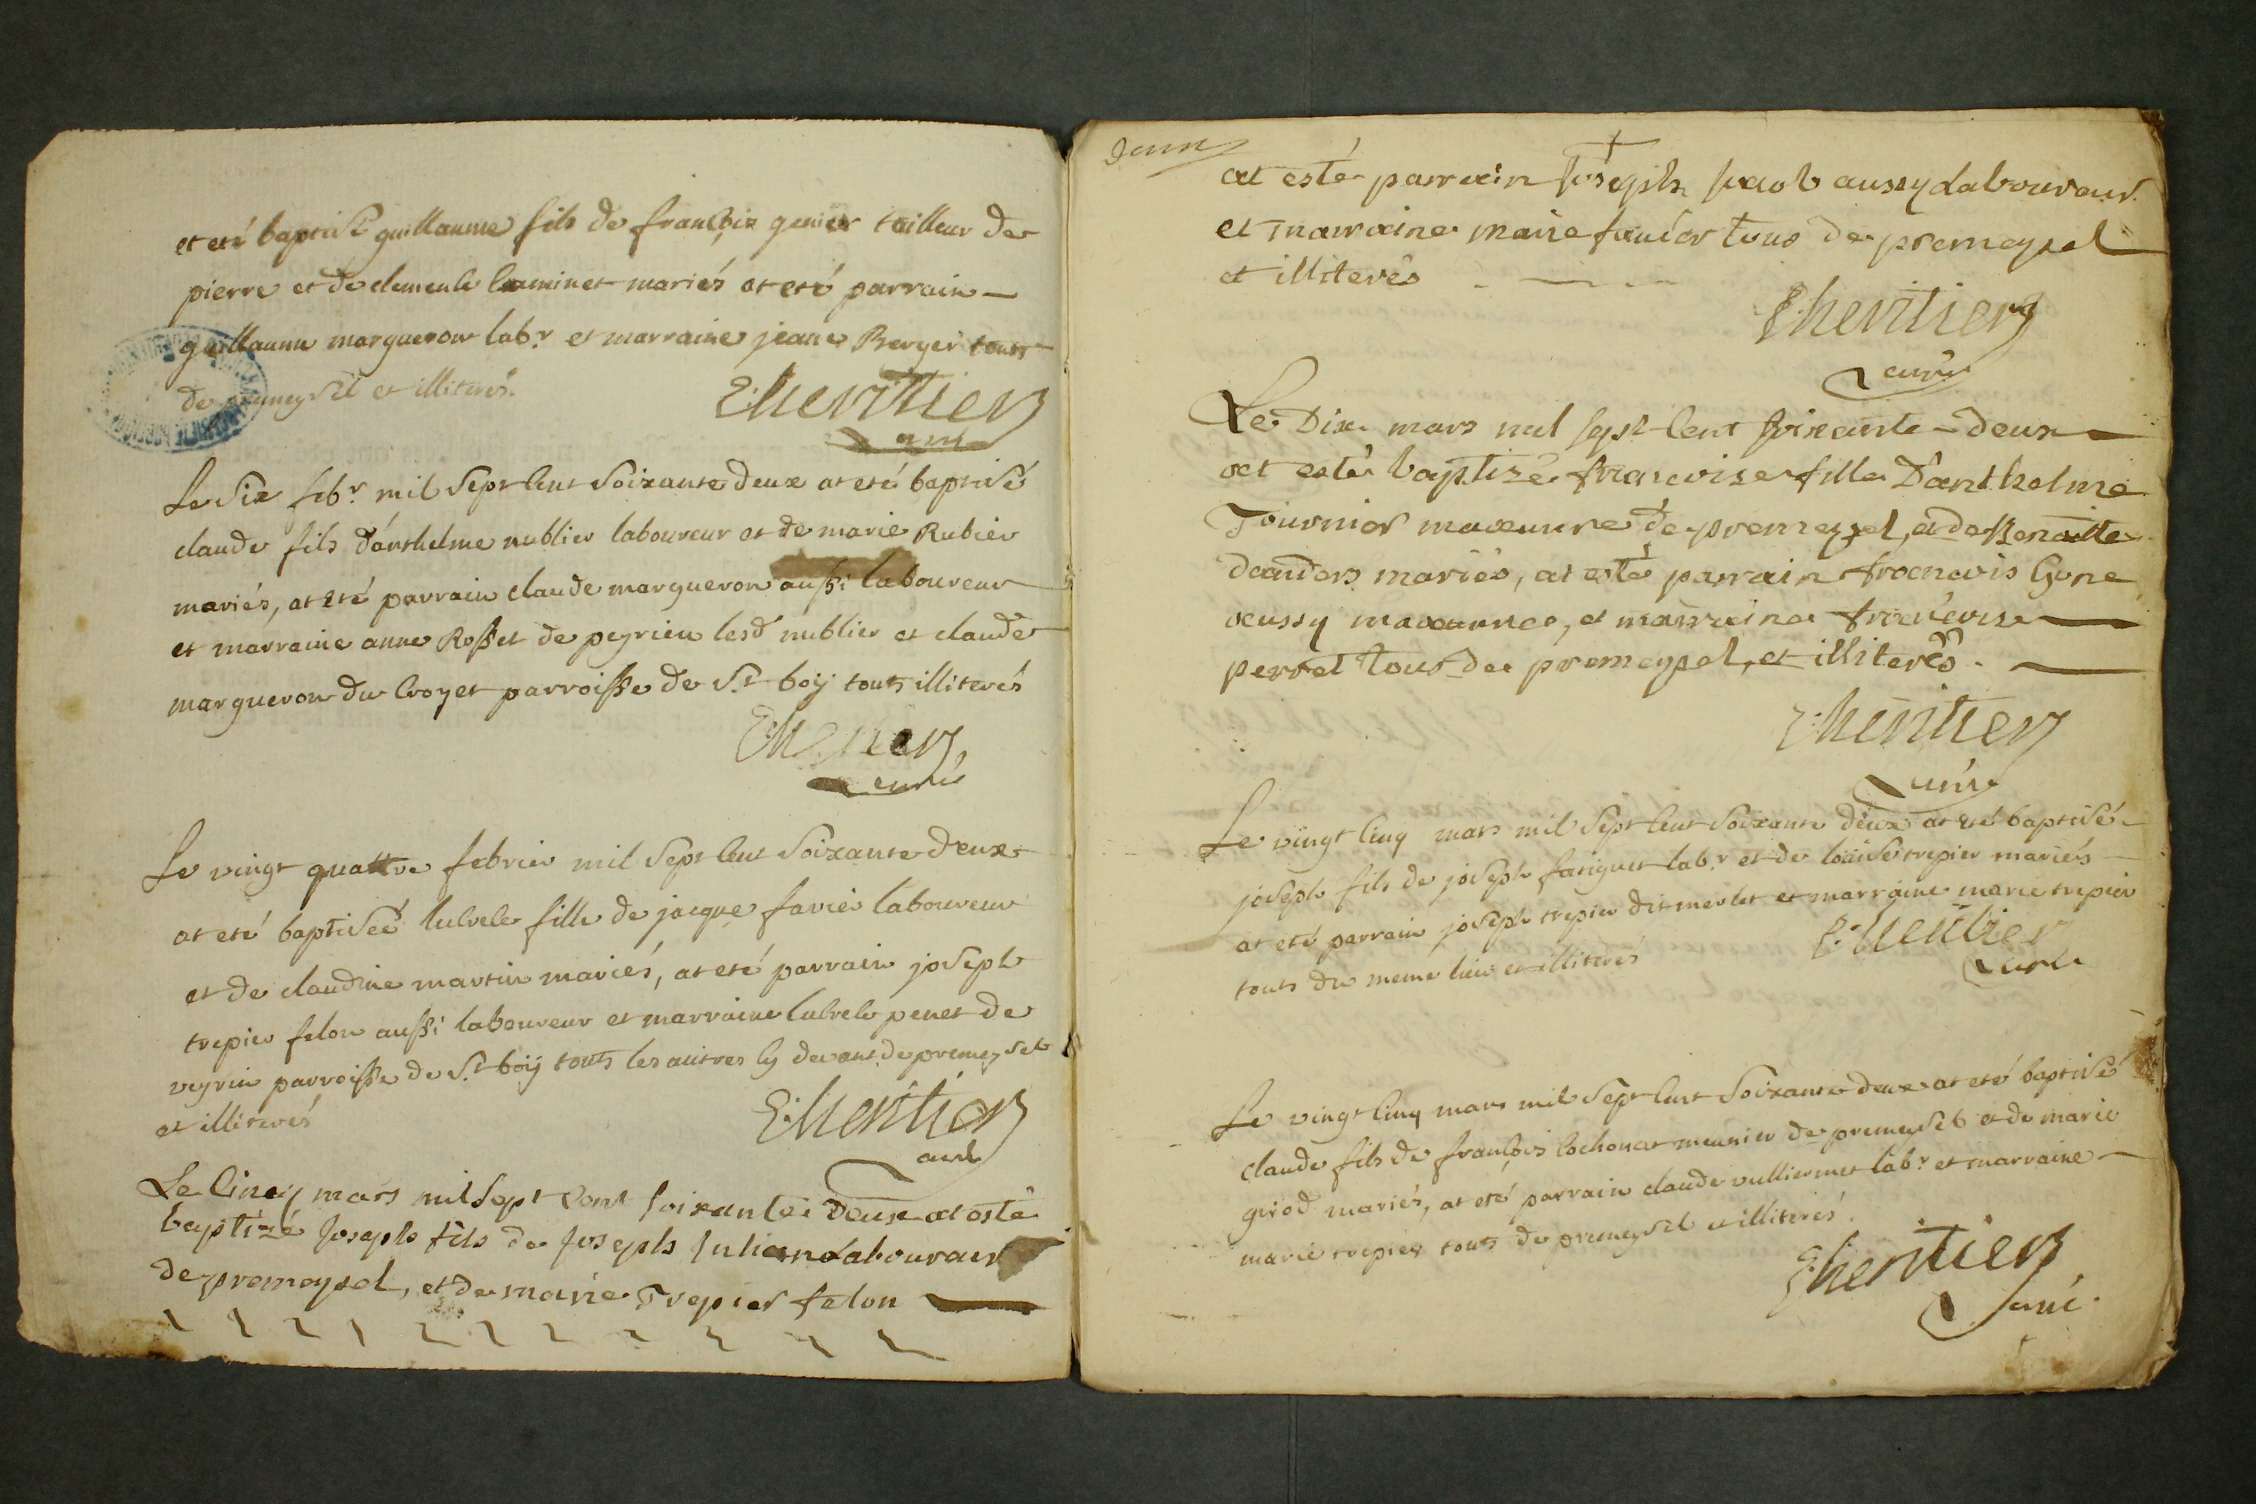 et eté baptisé guillaume fils de françois genier tailleur de
pierre et de clemence laminet mariés at eté parrain
guillaume margueron labr et marraine jeane Berger touts
de premeysel et illiterés.
Lheritier
curé
Le six febr mil sept cent soixante deux at eté baptisé
claude fils d'anthelme nublier laboureur et de marie Rubier
mariés, at eté parrain claude margueron aussi laboureur
et marraine anne Rosset de peyrieu lesd nublier et claude
margueron du Croyet parroisse de St boij touts illiterés
Lheritier
curé
Le vingt quattre febrier mil sept cent soixante deux
at eté baptiseé fille de jacque favier laboureur
et de claudine martin mariés, at eté parrain joseph
trepier felon aussi laboureur et marraine penet de
veyrin parroisse de St boij touts les autres cy devant de premeysel
et illiterés
Lheritier
curé
Le Cinq mars mil sept cent soixante deux at esté
baptizé Joseph fils de Joseph Julian labouraur
de premeysel, et de marie Trepier felon
at esté parrain Joseph Jacob aussy labouraur
et marraine marie favier tous de premeysel
et illiterés
Lheritier
curé
Le Dix mars mil sept cent soixante deux
at esté baptizé francoise fille D'anthelme
Tournier de premeysel, et de Benoitte
mariés, at esté parrain francois Gene
aussy et marraine francoise
perret tous de premeysel, et illiterés.
Lheritier
curé
Le vingt cinq mars mil sept cent soixante deux at eté baptisé
joseph fils de joseph fatiguet labr et de loüise trepier mariés
at eté parrain joseph trepier dit merlet et marraine marie trepier
touts du meme lieu et illiterés
Lheritier
curé
Le vingt cinq mars mil sept cent soixante deux at eté baptisé
claude fils de françois Cochonat meunier de premeysel et de marie
guiod mariés, at eté parrain claude vulliermet labr et marraine
marie trepier touts de premeysel et illiterés.
Lheritier
curé